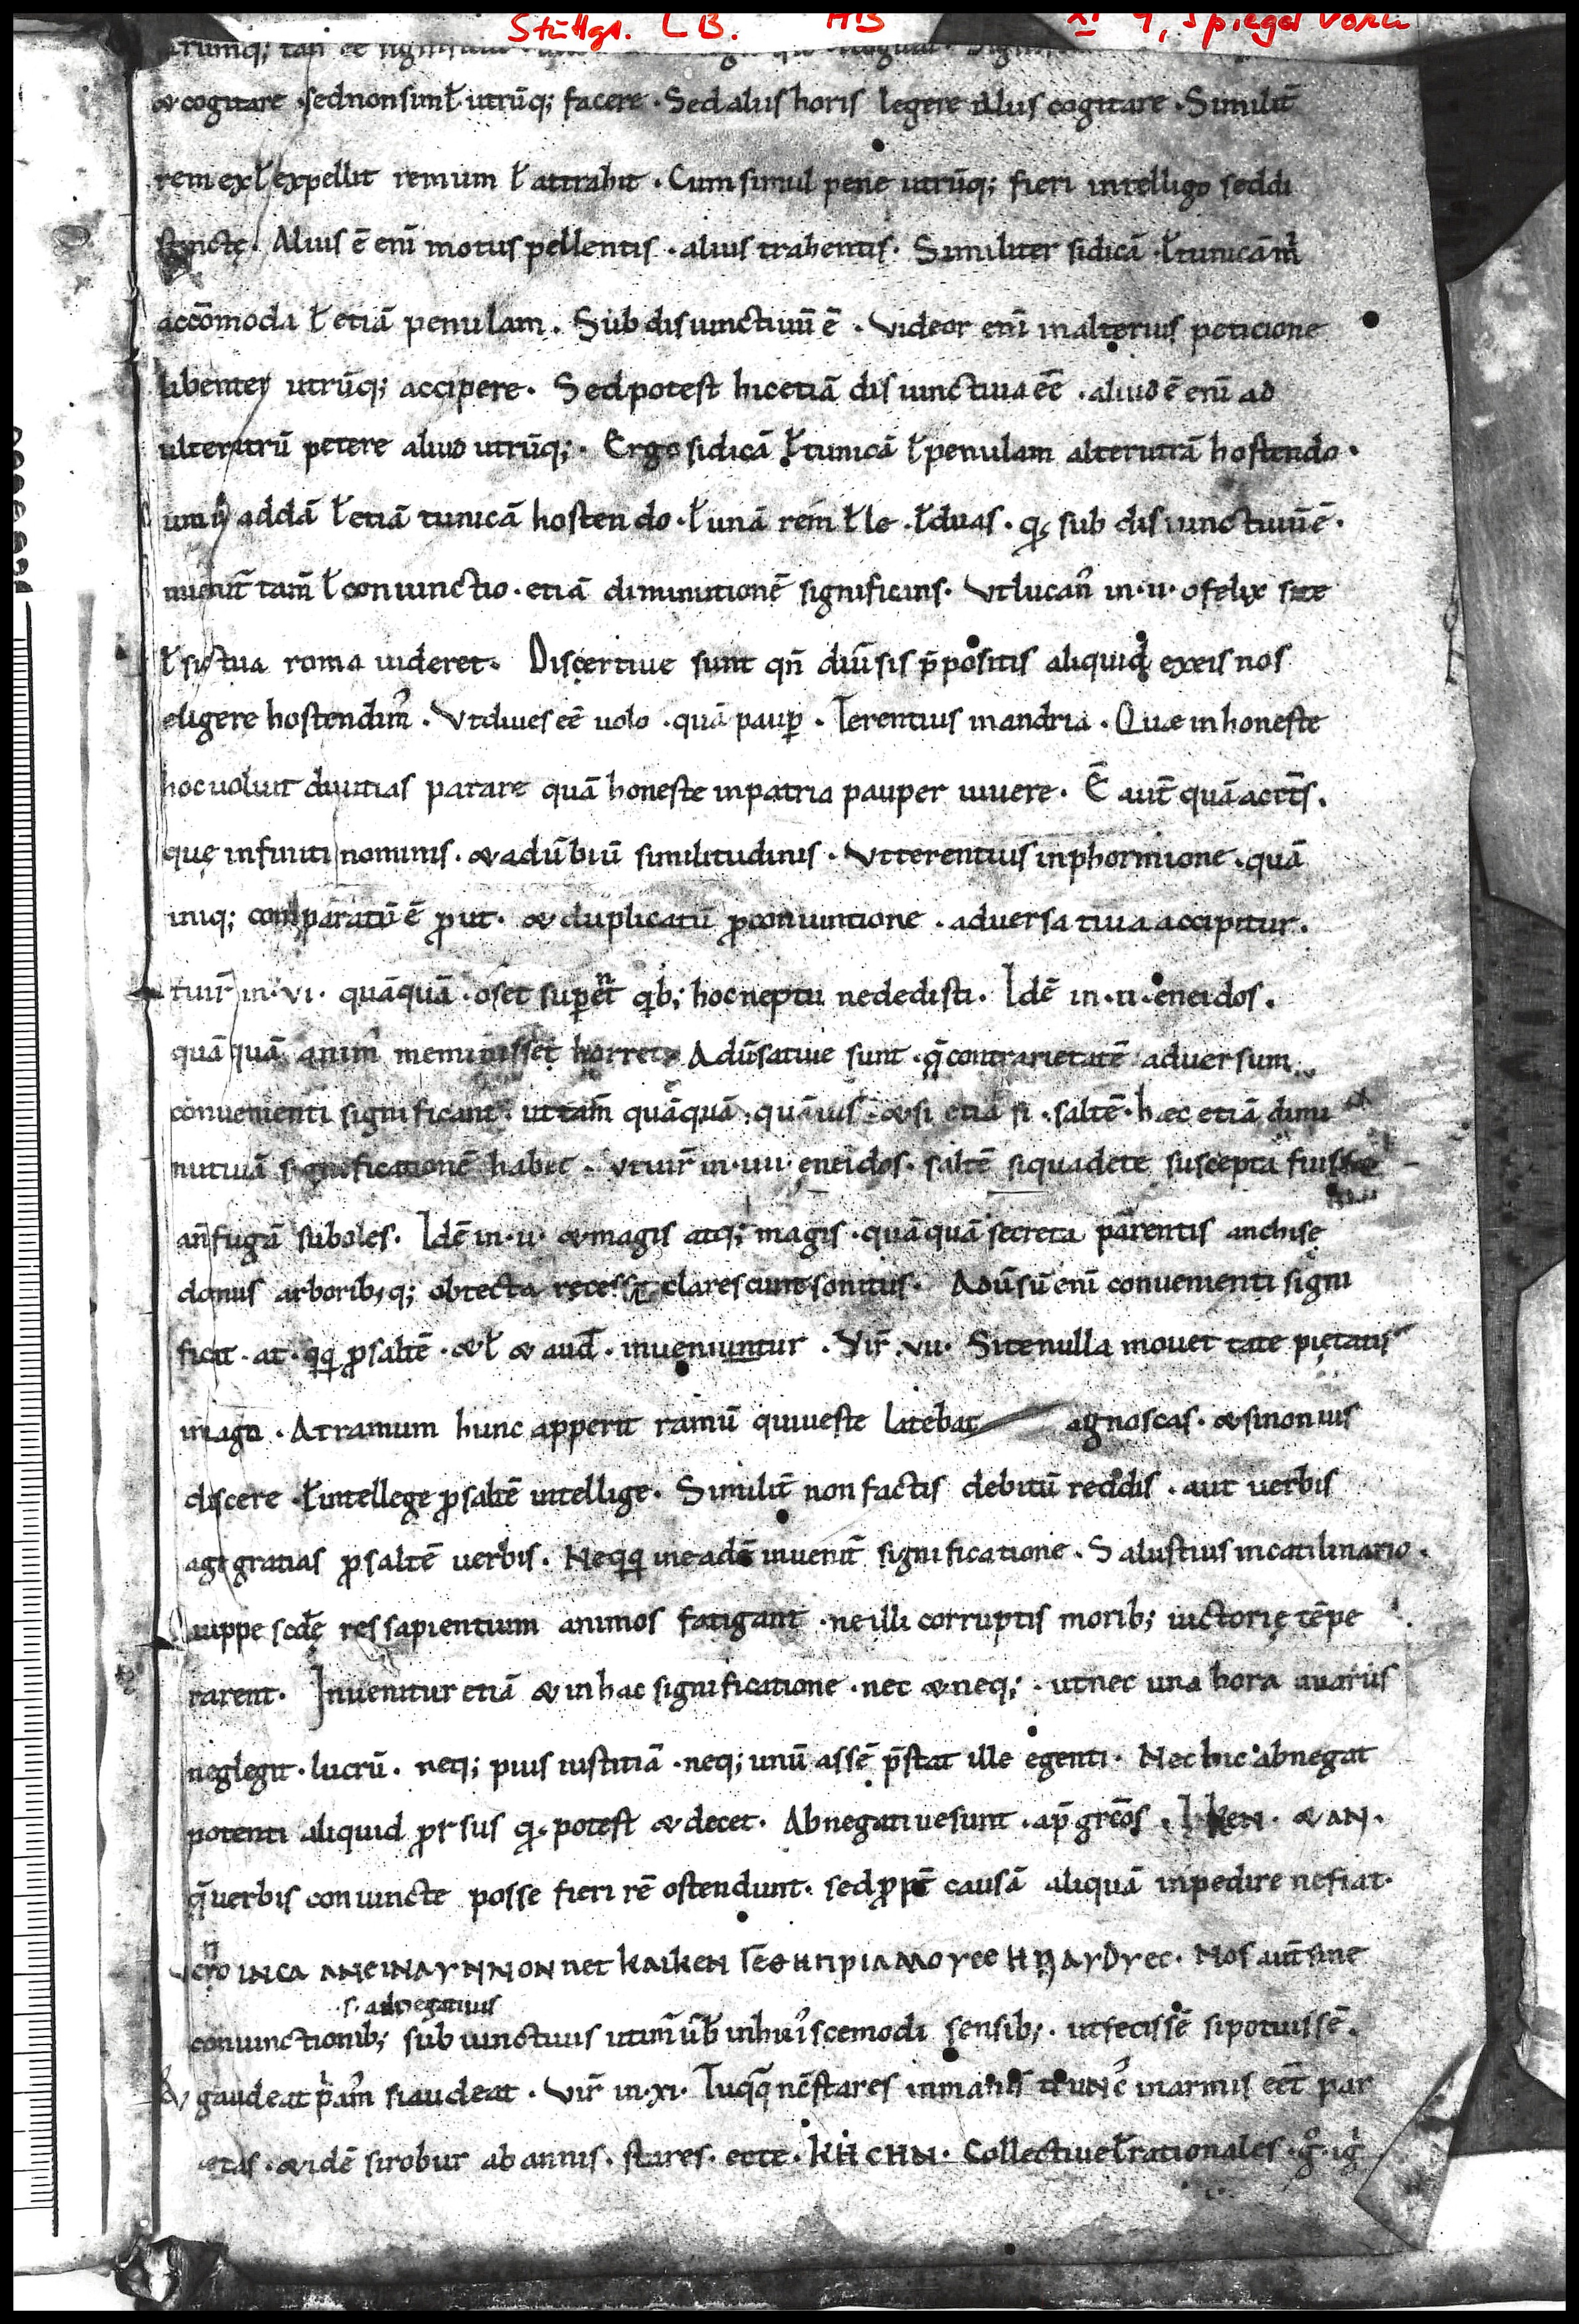 Stuttgr. LB. HB XI 4, Spiegel vorn
& cogitare · sed non simł utrūq; facere · Sed aliis horis legere aliis cogitare · Similit̄
rem ex ł expellit remum ł attrahit · Cum simul pene utrūq; fieri intelligo sed di
stincte · Alius ē eni motus pellentis · alius trahentis · Similiter si dicā · ł tunicā m̄
accōmoda ł etiā penulam · Subdisiunctiuū ē · Videor eni in alterius peticione
libenter utrūq; accipere · Sed potest hic etiā disiunctiua eē · aliud ē eni ad
alterutrū petere aliud utrūq; · Ergo si dicā ł tunicā ł penulam alterutrā hostendo ·
addā ł etiā tunicā hostendo · ł unā rem ł le · ł duas · q; subdisiunctiuū ē ·
tam̄ ł coniunctio · etiā diminutionē significans · Vt lucan̄ in · ii · o felix si te
ł sic tua roma uideret · Discertiue sunt qn̄ diūsis p̄positis aliquid ex eis nos
eligere hostendim̄ · Vt diues eē uolo · quā paup̱ · Terentius in andria · Quæ inhoneste
hoc uoluit diuitias parare quā honeste in patria pauper uiuere · Ē aut̄ quā acct̄s ·
quę infiniti nominis · & adūbiū similitudinis · Vt terentius in phormione · quā
iniq; comparatū ē ꝓ ut · & duplicatū ꝓ coniuntione · aduersatiua accipitur ·
uir̄ in · vi · quāquā · o set super et qb; hoc neptu ne dedisti · Idē in · ii · eneidos ·
quāquā anim̄ meminisset horret · Adūsatiue sunt · q̄ contrarietatē aduersum
conuenienti significant · ut tam̄ quāquā · quāuis · & si etiā si · saltē · hæc etiā dimi
nutiuā significationē habet · Vt uir̄ in · iiii · eneidos · saltē si qua de te suscepta fuisset
an̄ fugā suboles · Idē in · ii · & magis atq; magis · quāquā secreta parentis anchise
domus arborib; q; obtecta recessit clarescunt sonitus · Adūsū eni conuenienti signi
ficat · at · qq ꝓ saltē · & ł & aud̄ · inueniuntur · Vir̄ · vii · Si te nulla mouet tate pietatis
imago · At ramum hunc apperit ramū qui ueste latebat agnoscas · & si non uis
discere · ł intellege ꝓ saltē intellige · Similit̄ non factis debitū reddis · aut uerbis
age gratias ꝓ saltē uerbis · Neqq in eadē inuenit̄ significatione · Salustius in catilinario ·
Quippe scdę res sapientium animos fatigant · ne illi corruptis morib; uictorię tēpe
rarent · Inuenitur etiā & in hac significatione · nec & neq; · ut nec una hora auarus
neglegit · lucrū · neq; pius iustitiā · neq; unū assē p̄stat ille egenti · Nec hic abnegat
potenti aliquid ꝓrsus q; potest & decet · Abnegatiue sunt · ap̄ grc̄os · KEN · & AN ·
q̄ uerbis coniuncte posse fieri rē ostendunt · sed ꝓpt̄ causā aliquā inpedire ne fiat ·
Nos aut̄ sine
s. abnegatiuis
coniunctionib; subiunctiuis utim̄ ūb̄ in huiscemodi sensib; · ut fecissē si potuissē ·
& gaudeat p̄am̄ si audeat · Vir̄ in · xi · Tu qq nc̄ stares inmanis trunc̄ in armis eēt par
etas · & idē si robur ab annis · stares · · Collectiue ł rationales · g̊ · ig̊